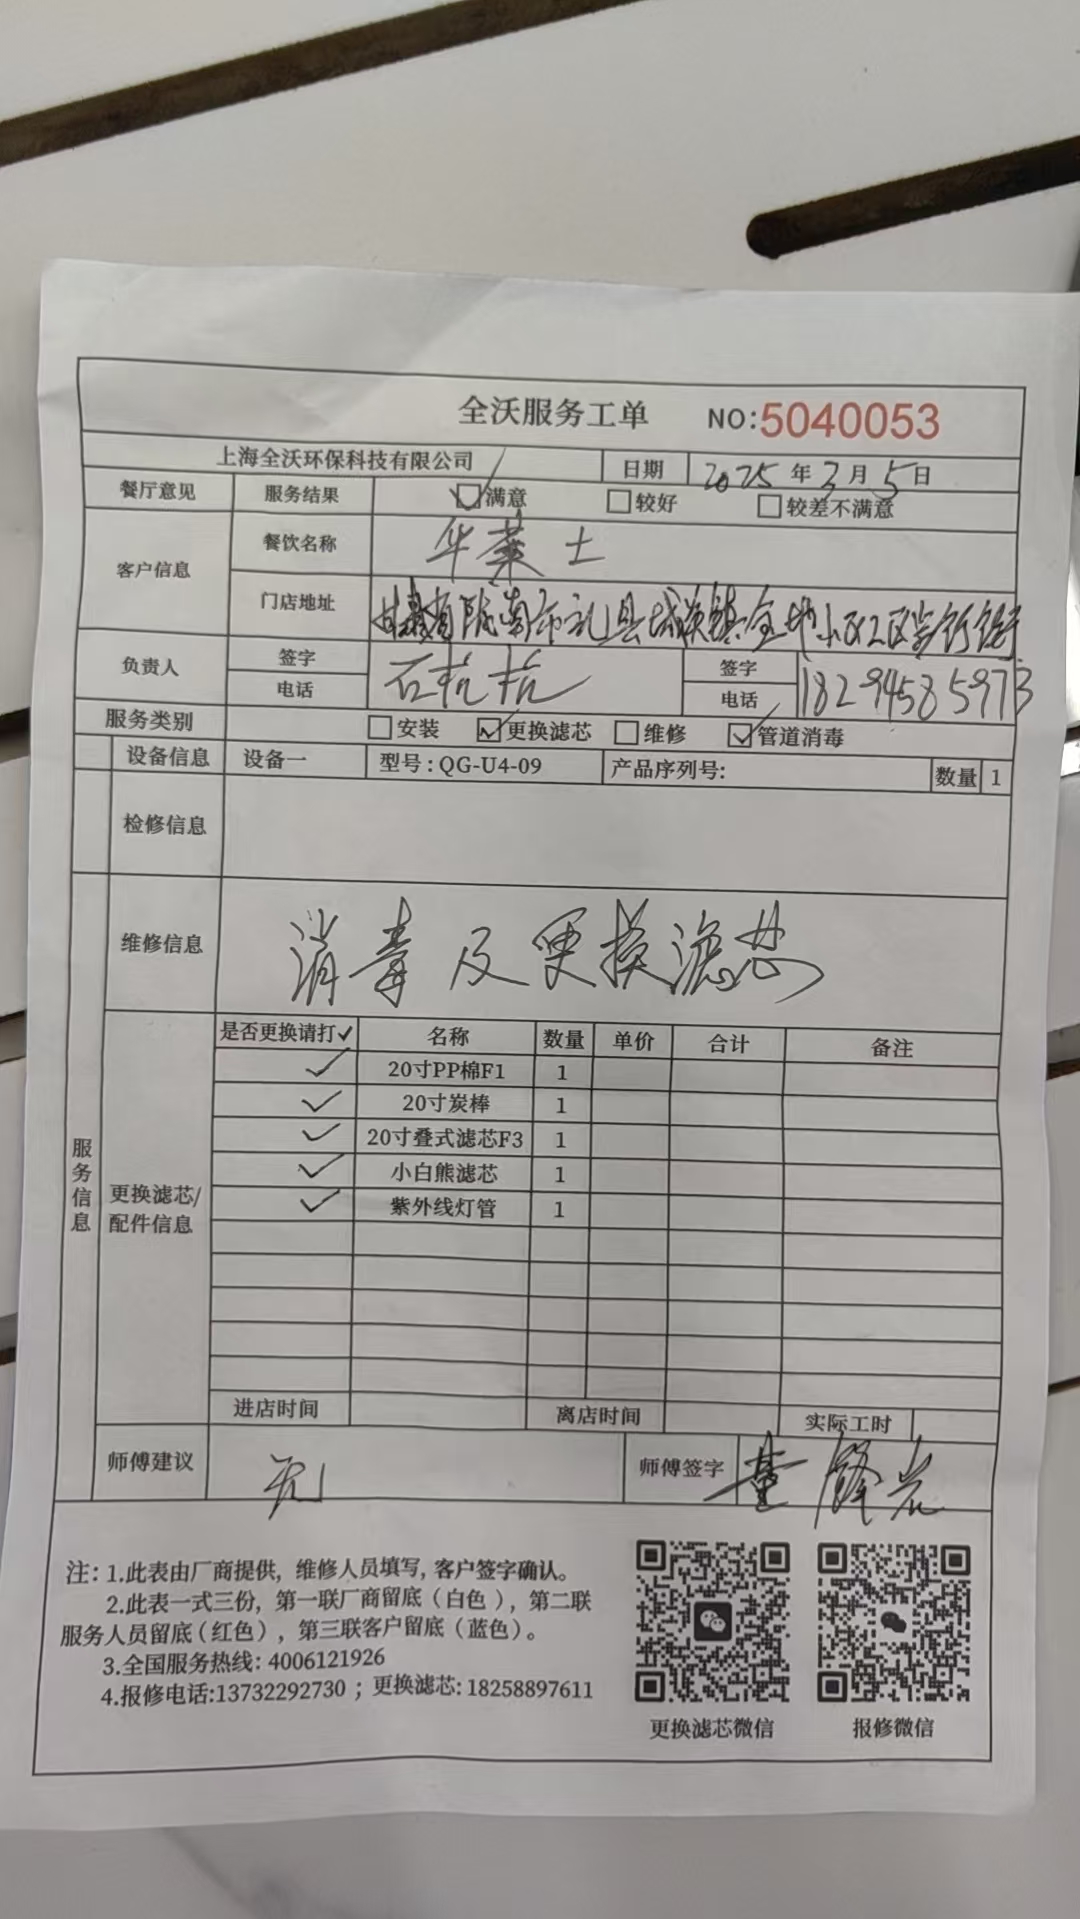 全沃服务工单 NO:5040053
上海全沃环保科技有限公司 日期 2025年3月5日
餐厅意见 服务结果 ☑满意 □较好 □较差不满意
客户信息 餐饮名称 华莱士
门店地址 甘肃省陇南市礼县城关镇金地小区2区
负责人 签字 石 签字
电话 电话 18294585973
服务类别 □安装 ☑更换滤芯 □维修 ☑管道消毒
设备信息 设备一 型号:QG-U4-09 产品序列号: 数量 1
检修信息
维修信息 消毒及更换滤芯
服务信息
更换滤芯/配件信息
是否更换请打✓ 名称 数量 单价 合计 备注
✓ 20寸PP棉F1 1
✓ 20寸炭棒 1
✓ 20寸叠式滤芯F3 1
✓ 小白熊滤芯 1
✓ 紫外线灯管 1
进店时间 离店时间 实际工时
师傅建议 无 师傅签字 董锋岩
注: 1.此表由厂商提供, 维修人员填写, 客户签字确认。
2.此表一式三份, 第一联厂商留底(白色), 第二联
服务人员留底(红色), 第三联客户留底(蓝色)。
3.全国服务热线: 4006121926
4.报修电话:13732292730 ; 更换滤芯: 18258897611
更换滤芯微信 报修微信